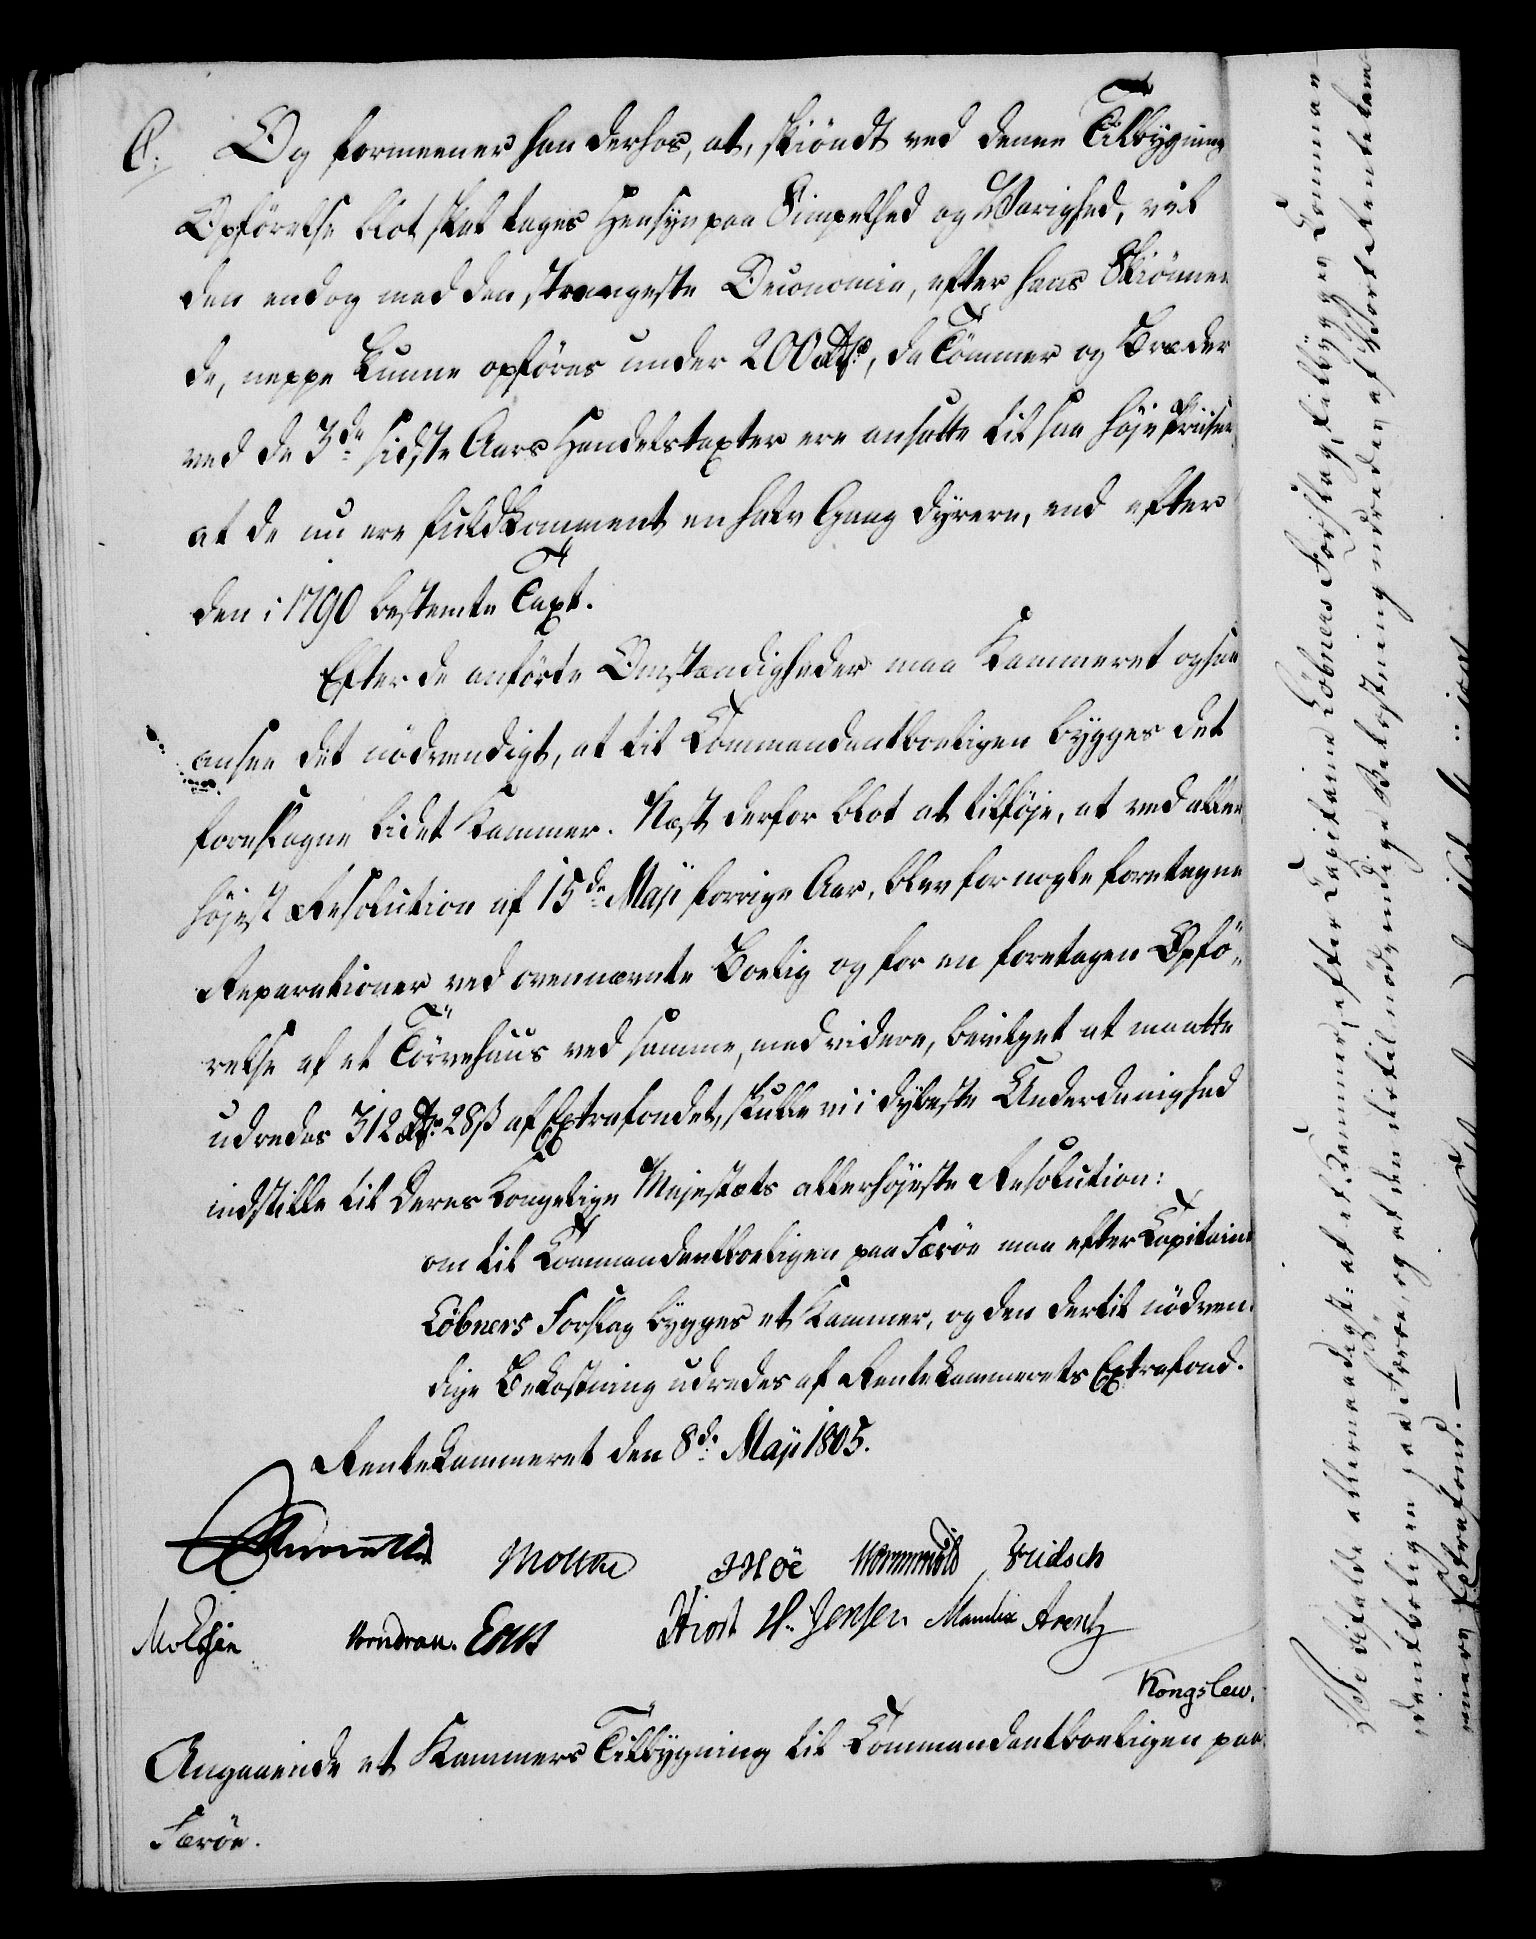 C. Og formeener han derhos, at, skiöndt ved denne Tilbygnings
Opförelse blot skal tages Hensyn paa Simpelhed og Varighed, vil
den endog med den strængeste Oeconomie, efter hans Skiönnen-
de, neppe kunne opföres under 200 Rd, da Tömmer og Bræder
ved de 3de sidste Aars Handelstaxter ere ansatte til saa höje Priiser,
at de nu ere fuldkomment en halv Gang dyrere, end efter
den i 1790 bestemte Taxt.
Efter de anförte Omstændigheder maa Kammeret ogsaa
ansee det nödvendigt, at til Commendantboeligen bygges det
foreslagne lidet Kammer. Næst derfor blot at tilföje, at ved aller-
höjest Resolution af 15de Maji forrige Aar, blev for nogle foretagne
Reparationer ved ovennævnte Boelig og for en foretagen Opfö-
relse af et Törvehuus ved samme, med videre, bevilget at maatte
udredes 312 Rd 28 ß af Extrafondet, skulle vi i dybeste Underdanighed
indstille til Deres Kongelige Majestæts allerhöjeste Resolution:
om til Commendantboeligen paa Færöe maa efter Capitaine
Löbners Forslag bygges et Kammer, og den dertil nödven-
dige Bekostning udredes af Rentekammerets Extrafond.
Rentekammeret den 8de Maji 1805.
Moltke Höe Wormskiold Fridsch
Vondrau. Hiort H. Jensen. Manthey Arentz
Kongslew.
Angaaende et Kammers Tilbygning til Commendantboeligen paa
Færöe.
Vi ville allernaadigst: at et Kammer, efter Capitaine Löbners Forslag, tilbygges Commen-
dantboeligen paa Færöe, og at den dertil nödvendige Bekostning udredes af Vort Rentekam-
mers Extrafond.